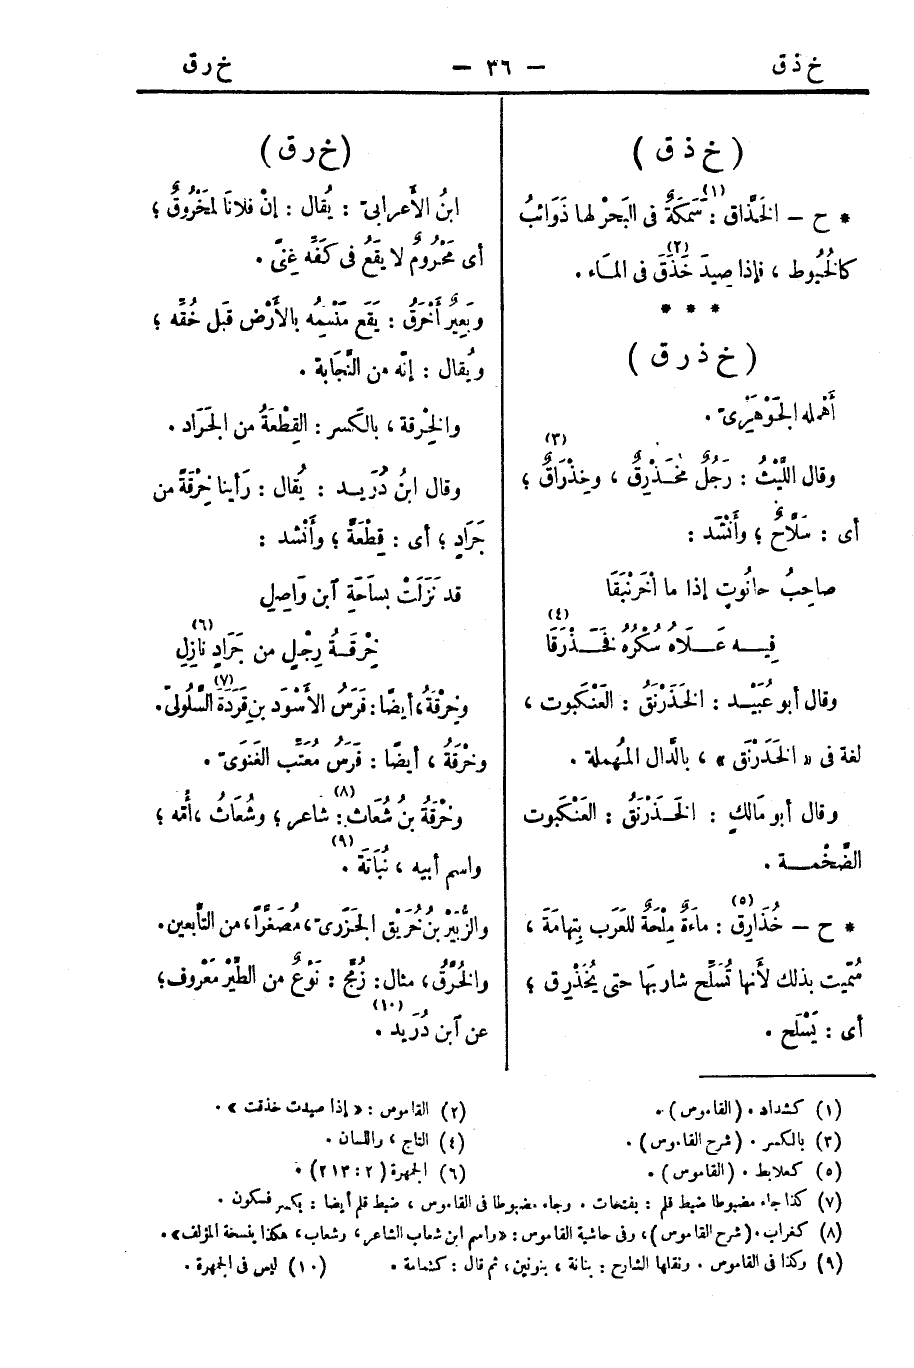 خ ذق — ٣٦ — خ رق
( خ ذ ق )
* ح — الخَذَّاق(١) : سَمَكَةٌ فى البَحْر لها ذَوَائبُ
كالخُيُوط ، فإذا صِيدَ خَذَقَ(٢) فى المـَاء .
* * *
( خ ذ ر ق )
أَهْمله الجَوْهَرِىّ .
وقال اللَّيْثُ : رَجُلٌ مُخَـذْرِقٌ ، وخِذْرَاقٌ(٣) ؛
أى : سَلَّاحٌ ؛ وأَنْشَد :
صاحِبُ حانُوتٍ إذا ما اخْرَنْبَقَا
فِيــه عَــلَاه سُكْرُه فخَــذْرَقَا(٤)
وقال أبو عُبَيْـد : الخَذَرْنَقُ : العَنْكبوت ،
لغة فى « الخَدَرْنَق » ، بالدَّال المُهملة .
وقال أبو مَالكٍ : الخَـذَرْنَقُ : العَنْكَبوت
الضَّخْمــة .
* ح — خُذَارِق(٥) : ماءَةٌ مِلْحَةٌ للعَرب بِتِهامَةَ ،
سُمّيت بذلك لأنها تُسَلِّح شاربَها حتى يُخَذْرِق ؛
أى : يَسْلَح .
( خ ر ق )
ابنُ الأَعرابىّ : يُقال : إنّ فلانًا لمَخْرُوقٌ ؛
أى مَحْرُومٌ لا يقَعُ فى كَفِّه غِنىً .
وبَعِيرٌ أَخْرَقُ : يَقَع مَنْسِمُه بالأَرْض قبل خُفّه ؛
ويُقال : إنّه من النَّجابة .
والخِرْقة ، بالكَسر : القِطْعَةُ من الجَرَاد .
وقال ابنُ دُرَيـد : يُقال : رَأَينا خِرْقَةً من
جَرَادٍ ؛ أى : قِطْعَةً ؛ وأَنْشد :
قد نَزَلَتْ بسَاحَةِ ٱبن وَاصِلِ
خِرْقَـةُ رِجْلٍ من جَرَادٍ نَازِلِ(٦)
وخِرْقَةُ ، أيضًا : فَرَسُ الأَسْوَد بن قَرَدَةَ(٧) السَّلُولىّ .
وخِرْقَةُ ، أيضًا : فَرَسُ مُعَتِّب الغَنَوىّ .
وخِرْقَةُ بنُ شُعَاث(٨) : شاعر ؛ وشُعَاثُ ، أُمّه ؛
واسم أبيه ، نُبَاتَة(٩) .
والزُّبَيْر بنُ خُرَيْق الجَزَرِىّ ، مُصَغَّرًا ، من التَّابعين .
والخُرَّقُ ، مثال : زُمَّج : نَوْعٌ من الطَّيْر مَعْروف ؛
عن ٱبن دُرَيد(١٠) .
(١) كشداد . (القاموس) .
(٢) القاموس : « إذا صيدت خذقت » .
(٣) بالكسر . (شرح القاموس) .
(٤) التاج ، واللسان .
(٥) كعلابط . (القاموس) .
(٦) الجمهرة (٢ : ٢١٣) .
(٧) كذا جاء مضبوطا ضبط قلم : بفتحات . وجاء مضبوطا فى القاموس ، ضبط قلم أيضا : بكسر فسكون .
(٨) كغراب . (شرح القاموس) ، وفى حاشية القاموس : « واسم ابن شعاب الشاعر ، وشعاب ، هكذا بنسخة المؤلف » .
(٩) وكذا فى القاموس . ونقلها الشارح : بنانة ، بنونين ، ثم قال : كثمامة .
(١٠) ليس فى الجمهرة .